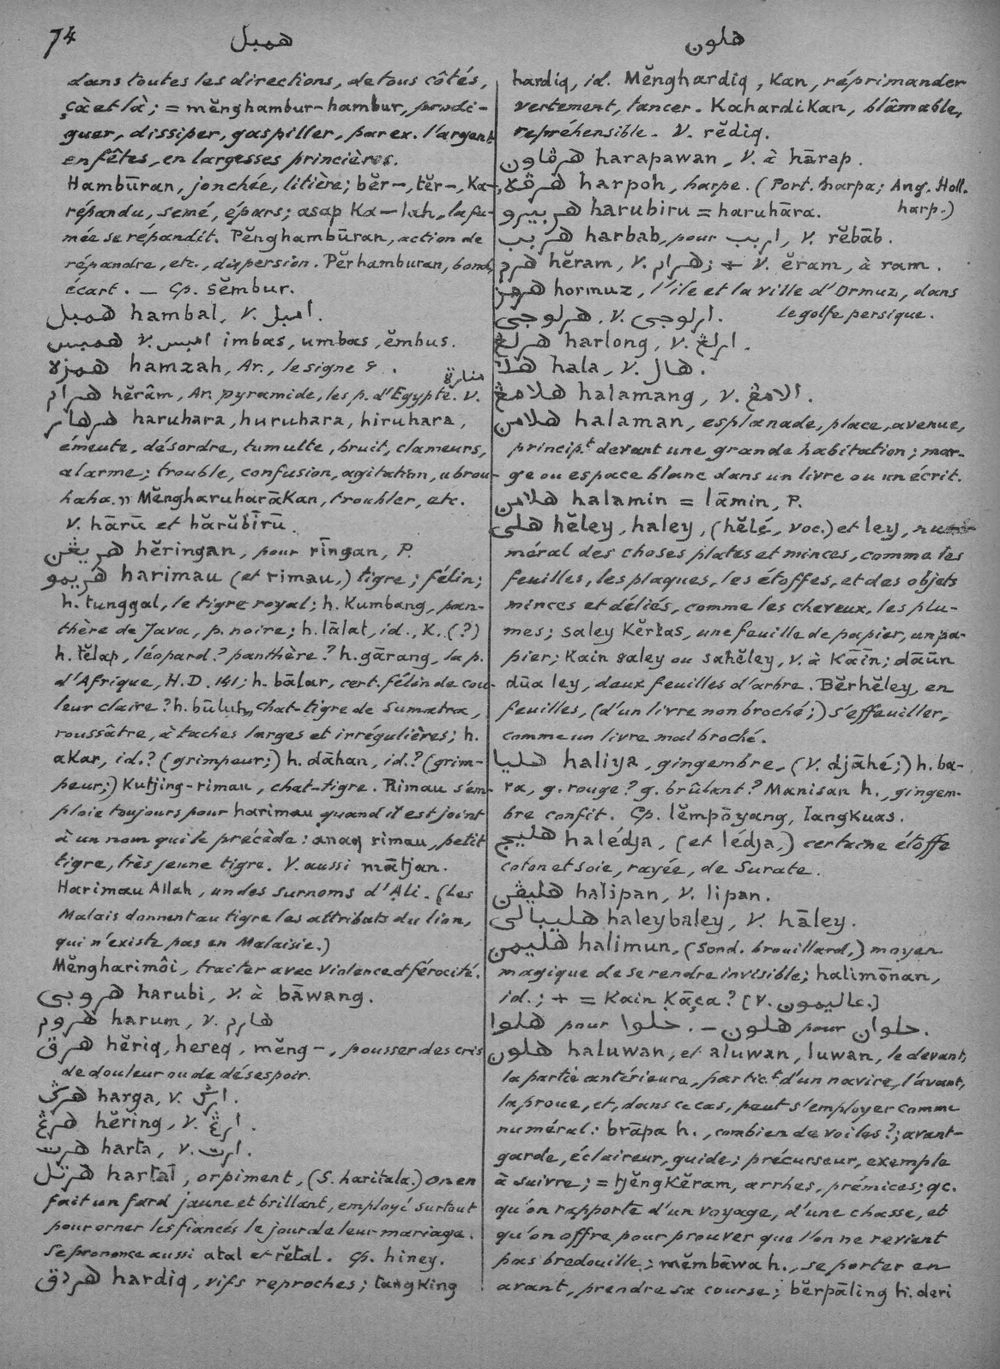 74
همبل
هلون
dans toutes les directions, de tous côtés,
çà et là; = mĕnghambur-hambur, prodi-
guer, dissiper, gaspiller, par ex. l'argent
en fêtes, en largesses princières.
Hambūran, jonchée, litière; bĕr-, tĕr-, Ka-,
répandu, semé, épars; asap Ka-lah, la fu-
mée se répandit. Pĕnghambūran, action de
répandre, etc., dispersion. Pĕrhamburan, bond,
écart. — Cp. sĕmbur.
همبل hambal, V. امبل.
همبس V. امبس imbas, umbas, ĕmbus.
همزه hamzah, Ar., le signe ء.
هرام hĕrâm, Ar. pyramide, les p. d'Egypte. V. منارة
هرهار haruhara, huruhara, hiruhara,
émeute, désordre, tumulte, bruit, clameurs,
alarme; trouble, confusion, agitation, «brou-
haha.» Mĕngharuharākan, troubler, etc.
V. hārū et hărŭbīrū.
هريڠن hĕringan, pour rīngan, P.
هريمو harimau (et rimau,) tigre; félin;
h. tunggal, le tigre royal; h. Kumbang, pan-
thère de Java, p. noire; h. lālat, id., K. (?)
h. tĕlap, léopard? panthère? h. gārang, la p.
d'Afrique, H.D. 141; h. bālar, cert. félin de cou-
leur claire? h. būluh, chat-tigre de Sumatra,
roussâtre, à taches larges et irrégulières; h.
akar, id.? (grimpeur;) h. dāhan, id.? (grim-
peur;) Kutjing-rimau, chat-tigre. Rimau s'em-
ploie toujours pour harimau quand il est joint
à un nom qui le précède: anaq rimau, petit
tigre, très jeune tigre. V. aussi mātjan.
Harimau Allah, un des surnoms d'Ali. (Les
Malais donnent au tigre les attributs du lion,
qui n'existe pas en Malaisie.)
Mĕngharimôi, traiter avec violence et férocité.
هروبي harubi, V. à bāwang.
هروم harum, V. هارم
هرق hĕriq, hereq, mĕng-, pousser des cris
de douleur ou de désespoir.
هرݢ harga, V. ارݢ.
هرڠ hĕring, V. ارڠ.
هرت harta, V. ارت.
هرتل hartal, orpiment, (S. haritala.) On en
fait un fard jaune et brillant, employé surtout
pour orner les fiancés le jour de leur mariage.
Se prononce aussi atal et rĕtal. Cp. hiney.
هردق hardiq, vifs reproches; tangking
hardiq, id. Mĕnghardiq, Kan, réprimander
vertement, tancer. Kahardikan, blâmable,
repréhensible. V. rĕdiq.
هرڤاون harapawan, V. à hārap.
هرڤه harpoh, harpe. (Port. harpa; Ang. Holl.
harp.)
هربيرو harubiru = haruhāra.
هربب harbab, pour اربب, V. rĕbāb.
هرم hĕram, V. هرام; + V. ĕram, à ram.
هرمز hormuz, l'île et la ville d'Ormuz, dans
le golfe persique.
هرلوجي. V. ارلوجي.
هرلڠ harlong, V. ارلڠ.
هلا hala, V. هال.
هلامڠ halamang, V. الامڠ.
هلامن halaman, esplanade, place, avenue,
princip.t devant une grande habitation; mar-
ge ou espace blanc dans un livre ou un écrit.
هلامن halamin = lāmin, P.
هلي hĕley, haley, (hĕlé, voc.) et ley, nu-
méral des choses plates et minces, comme les
feuilles, les plaques, les étoffes, et des objets
minces et déliés, comme les cheveux, les plu-
mes; saley Kĕrtas, une feuille de papier, un pa-
pier; Kain saley ou sahĕley, V. à Kāīn; dāūn
dūa ley, deux feuilles d'arbre. Bĕrhĕley, en
feuilles, (d'un livre non broché;) s'effeuiller,
comme un livre mal broché.
هليا haliya, gingembre, (V. djāhé;) h. ba-
ra, g. rouge? g. brûlant? Manisan h., gingem-
bre confit. Cp. lĕmpōyang, langkuas.
هليج halédja, (et lédja,) certaine étoffe
coton et soie, rayée, de Surate.
هليڤن halipan, V. lipan.
هليبالي haleybaley, V. hāley.
هليمن halimun, (Sond. brouillard,) moyen
magique de se rendre invisible; halimōnan,
id.; + = Kain Kāça? [V. عاليمون.]
هلوا pour حلوا. — هلون pour حلوان.
هلون haluwan, et aluwan, luwan, le devant,
la partie antérieure, partic.t d'un navire, l'avant,
la proue, et, dans ce cas, peut s'employer comme
numéral: brāpa h., combien de voiles?; avant-
garde, éclaireur, guide; précurseur, exemple
à suivre; = tjĕngKĕram, arrhes, prémices; qc.
qu'on rapporte d'un voyage, d'une chasse, et
qu'on offre pour prouver que l'on ne revient
pas bredouille; mĕmbāwa h., se porter en
avant, prendre sa course; bĕrpāling h. deri